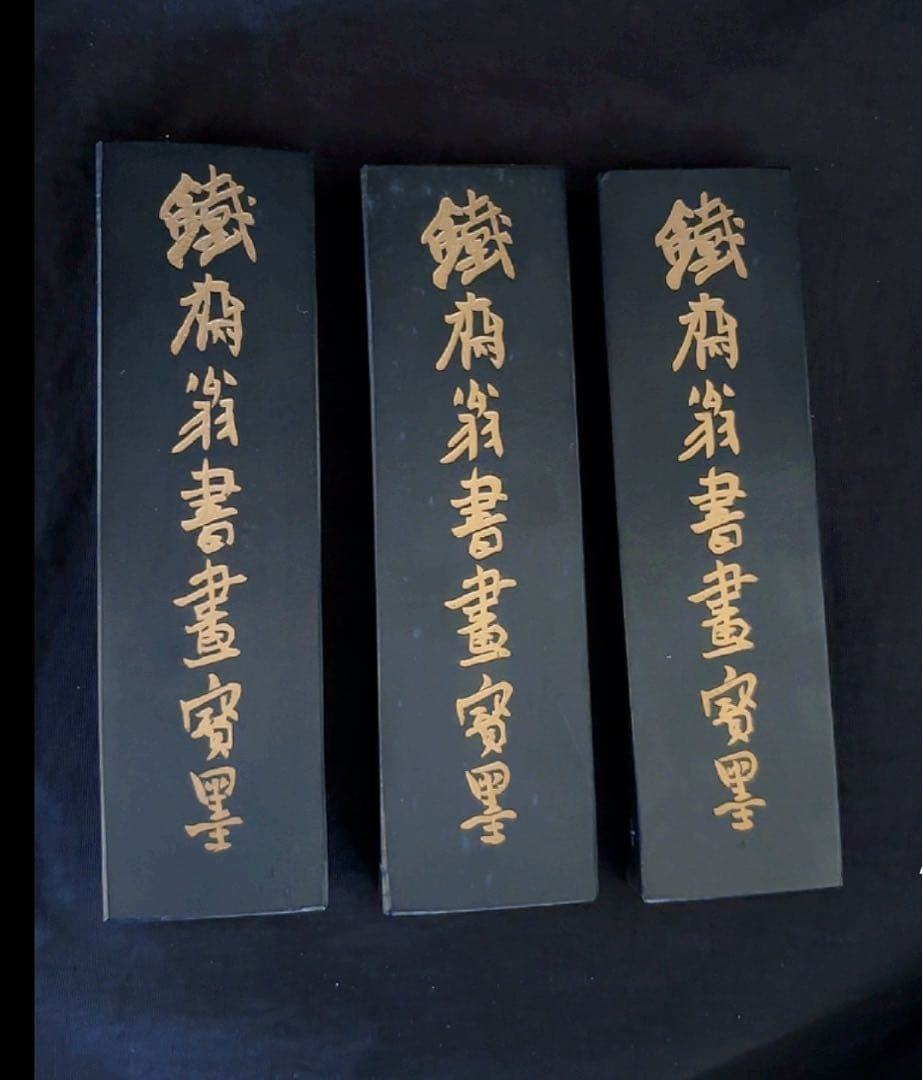 鐵齋翁書畫寶墨
鐵齋翁書畫寶墨
鐵齋翁書畫寶墨